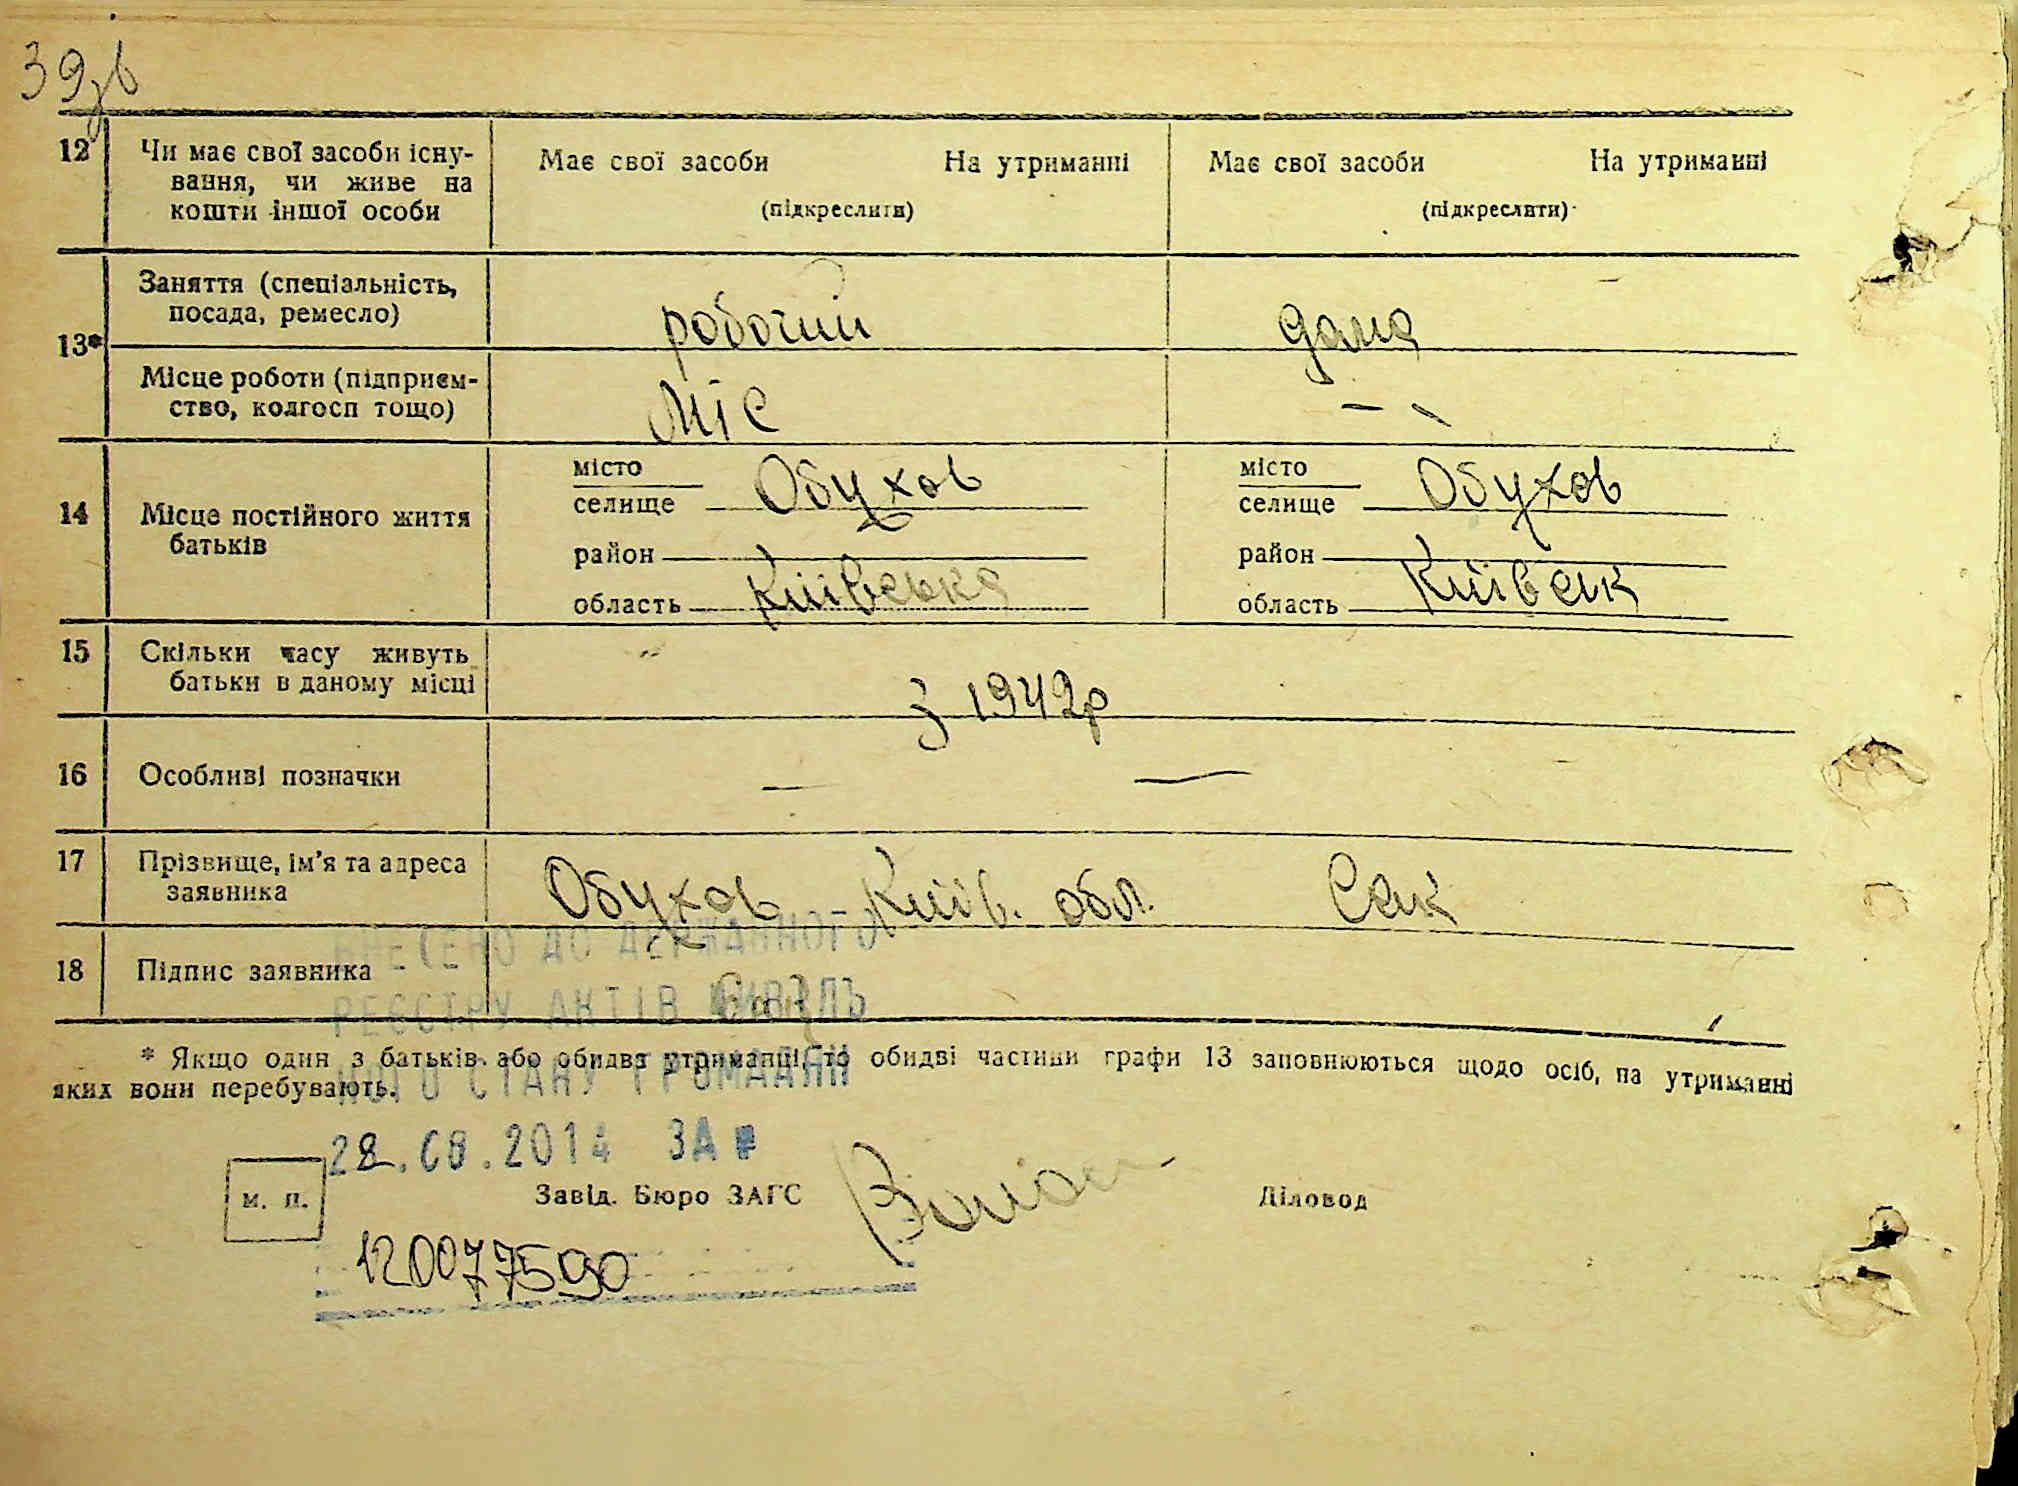 39зв
12 Чи має свої засоби існу- Має свої засоби На утриманні Має свої засоби На утриманні
вання, чи живе на
кошти іншої особи (підкреслити) (підкреслити)
13* Заняття (спеціальність,
посада, ремесло) робочий дома
Місце роботи (підприєм-
ство, колгосп тощо) Міс — —
14 Місце постійного життя
батьків
місто
селище Обухов
район
область Київська
місто
селище Обухов
район
область Київськ
15 Скільки часу живуть
батьки в даному місці з 1942р
16 Особливі позначки — —
17 Прізвище, ім'я та адреса
заявника Обухов Київ. обл. Сак
18 Підпис заявника
ВНЕСЕНО ДО ДЕРЖАВНОГО
РЕЄСТРУ АКТІВ ЦИВІЛЬ
НОГО СТАНУ ГРОМАДЯН
* Якщо один з батьків або обидва утриманці, то обидві частини графи 13 заповнюються щодо осіб, на утриманні
яких вони перебувають.
28.08.2014 ЗАР
м. п. Завід. Бюро ЗАГС Діловод
12007759​0